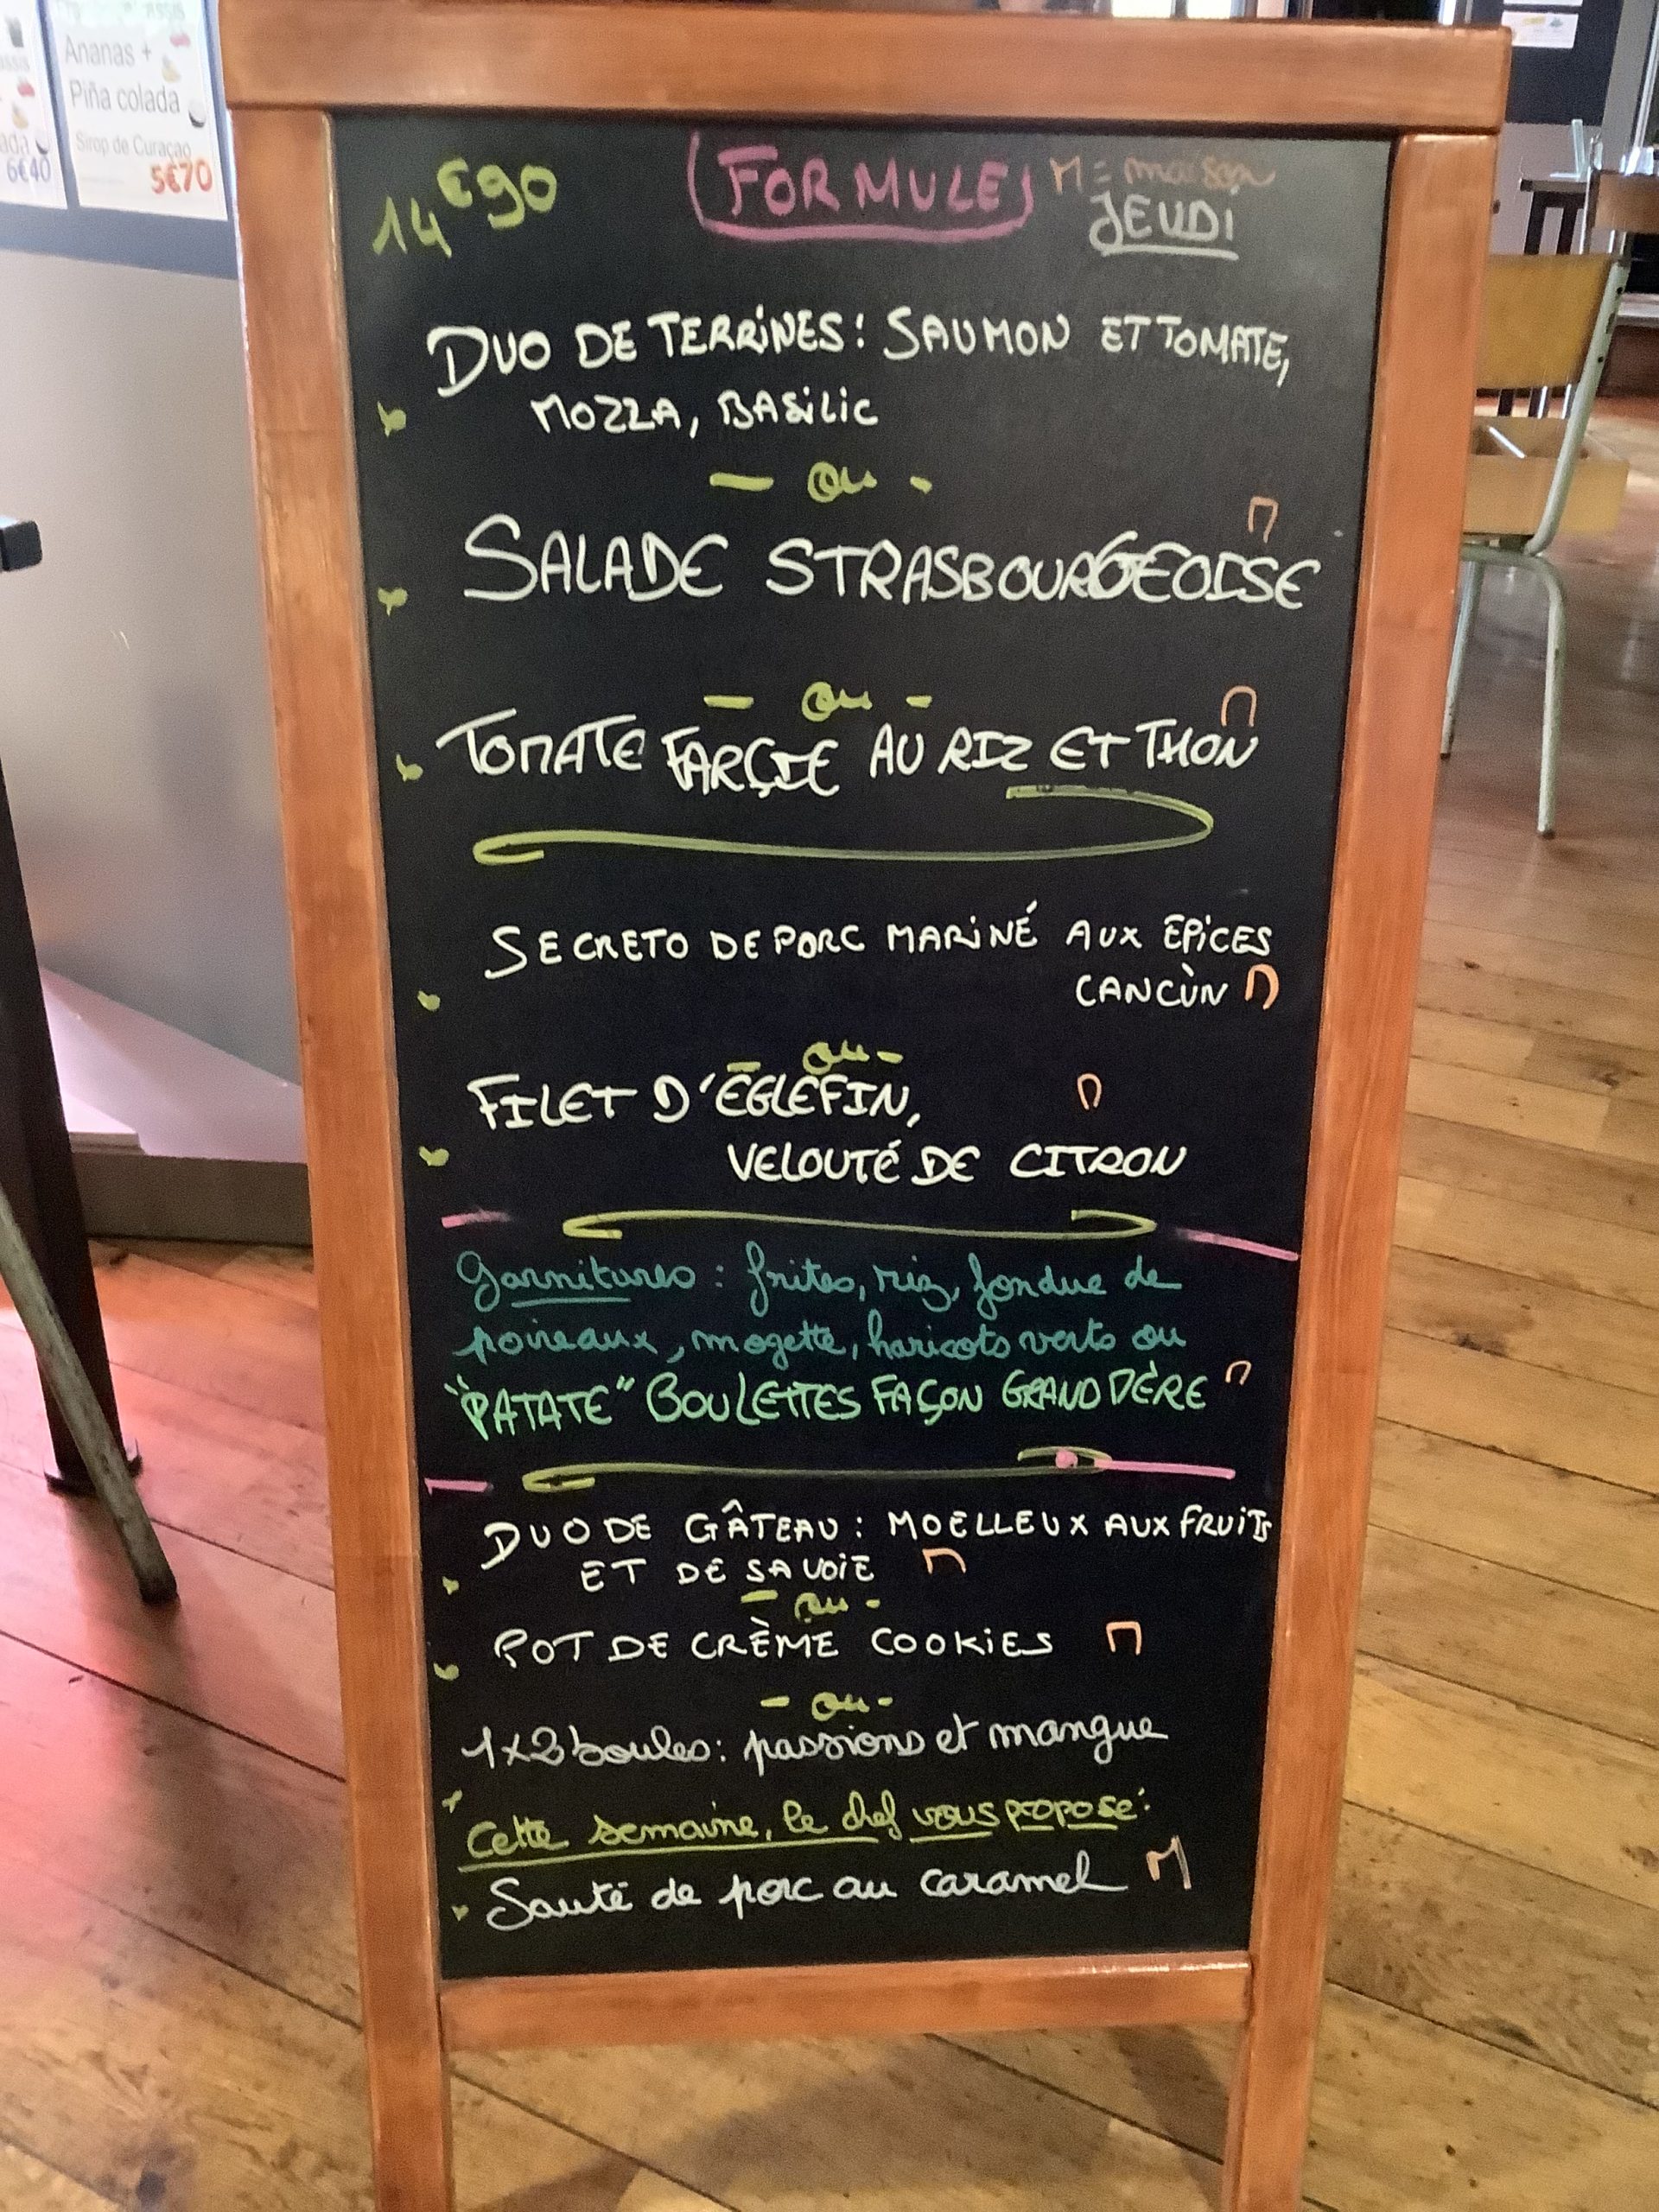 Ananas +
Piña colada
Sirop de Curaçao
5€70
6€40
14€90
FORMULE
M = maison
JEUDI
DUO DE TERRINES: SAUMON ET TOMATE,
MOZZA, BASILIC
- ou -
M
SALADE STRASBOURGEOISE
- ou -
M
TOMATE FARÇIE AU RIZ ET THON
SECRETO DE PORC MARINÉ AUX EPICES
CANCÙN M
- ou -
FILET D'ÉGLEFIN, M
VELOUTÉ DE CITRON
Garnitures : frites, riz, fondue de
poireaux, mogette, haricots verts ou
"PATATE" BOULETTES FAÇON GRAND PÈRE M
DUO DE GÂTEAU : MOELLEUX AUX FRUITS
ET DE SAVOIE M
- ou -
POT DE CRÈME COOKIES M
- ou -
1x2 boules : passions et mangue
Cette semaine, le chef vous propose :
Sauté de porc au caramel M